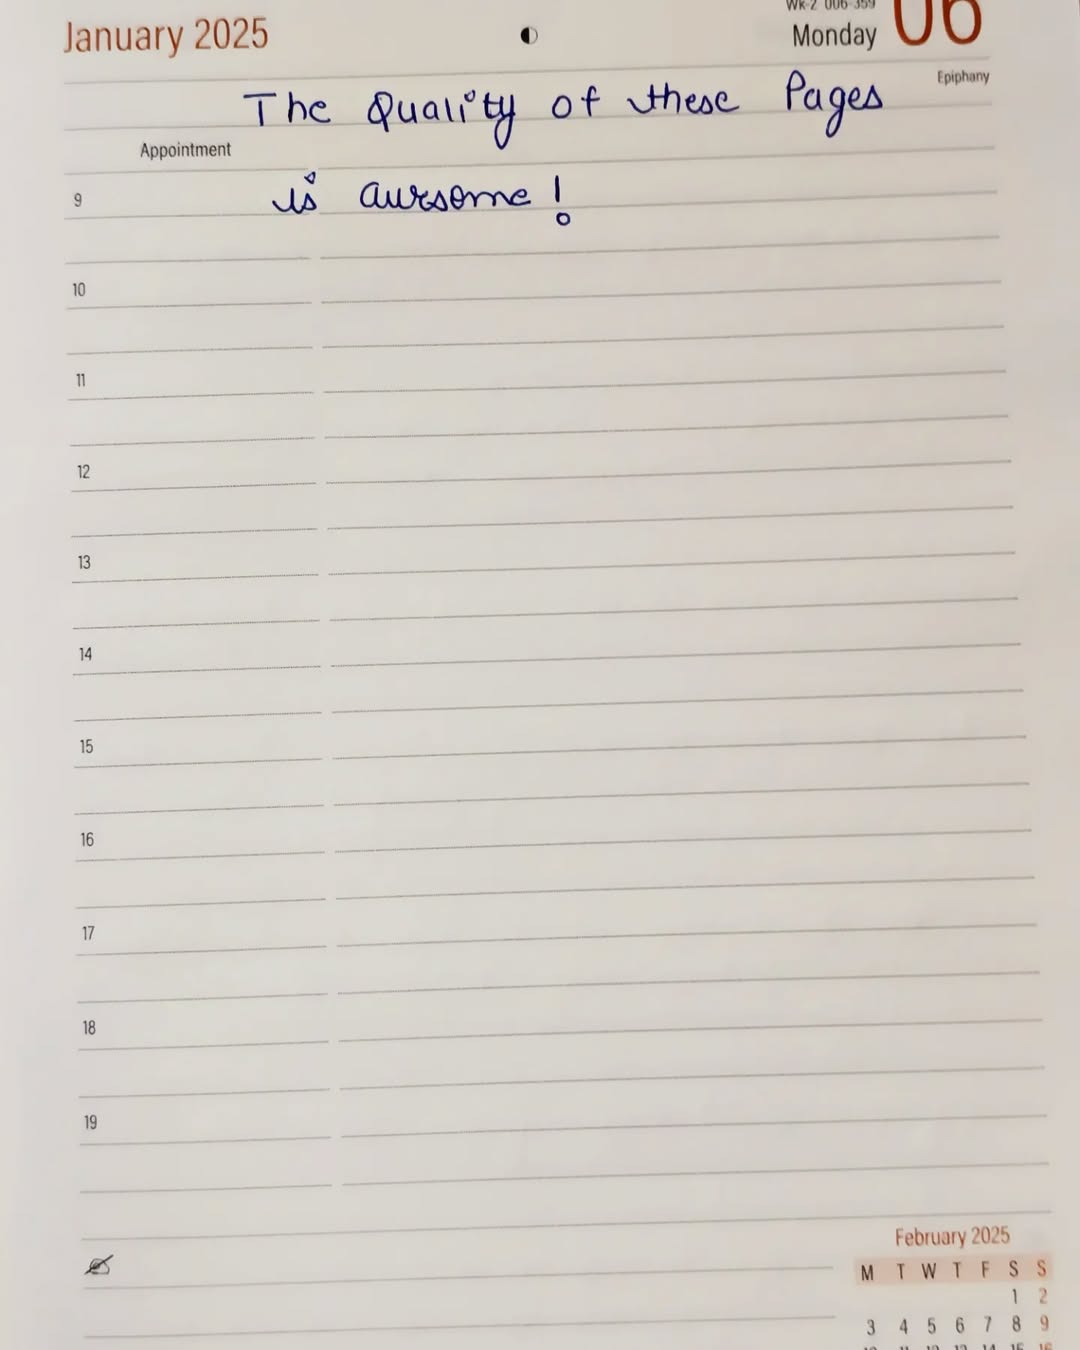 January 2025
WK-2 006-359
Monday 06
Epiphany
The Quality of these Pages
Appointment
9 is awesome!
10
11
12
13
14
15
16
17
18
19
February 2025
M T W T F S S
1 2
3 4 5 6 7 8 9
10 11 12 13 14 15 16